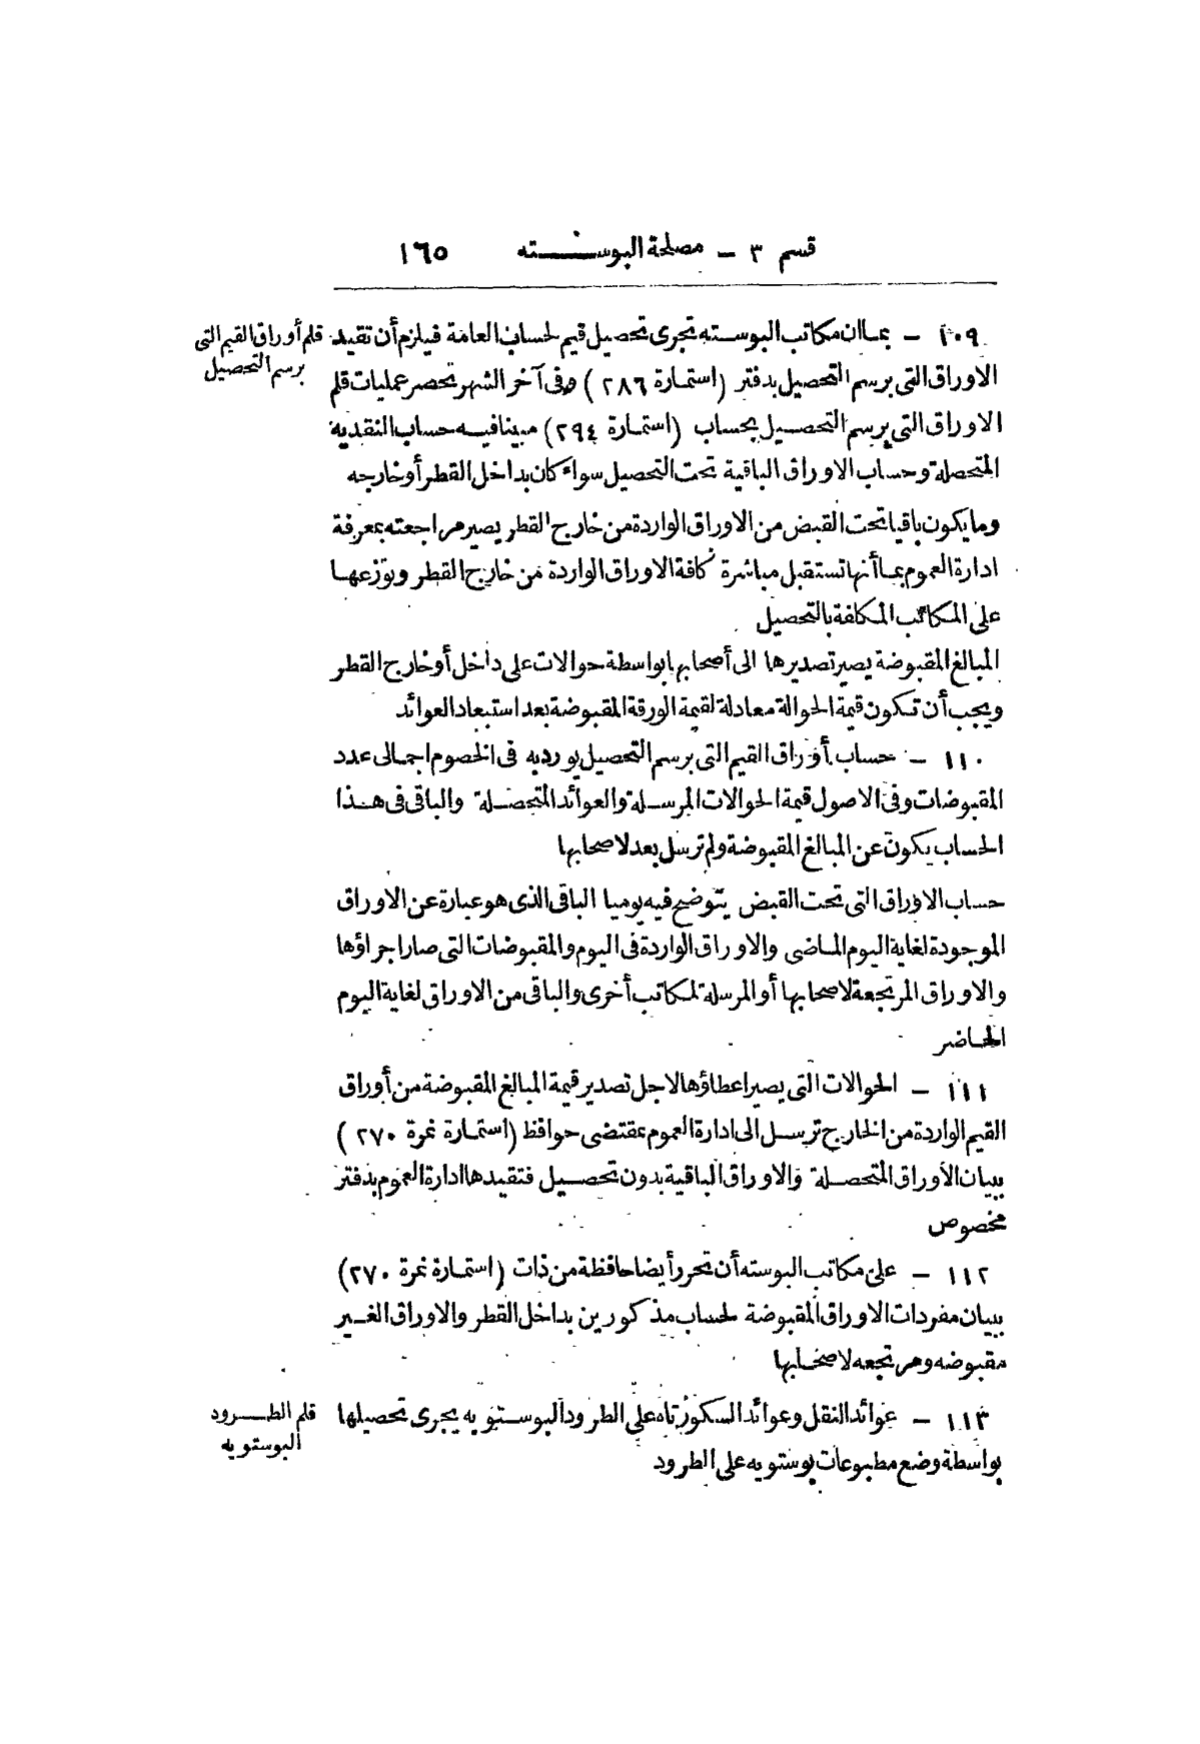 قسم ٣ – مصلحة البوسته ١٦٥
١٠٩ – بما ان مكاتب البوسته تجرى تحصيل قيم لحساب العامة فيلزم أن تقيد
قلم أوراق القيم التى
برسم التحصيل
الاوراق التى برسم التحصيل بدفتر (استمارة ٢٨٦) وفى آخر الشهر تحصر عمليات قلم
الاوراق التى برسم التحصيل بحساب (استمارة ٢٩٤) مبينا فيه حساب النقدية
المتحصلة وحساب الاوراق الباقية تحت التحصيل سواء كان بداخل القطر أو خارجه
وما يكون باقيا تحت القبض من الاوراق الواردة من خارج القطر يصير مراجعته بمعرفة
ادارة العموم بما أنها تستقبل مباشرة كافة الاوراق الواردة من خارج القطر وتوزعها
على المكاتب المكلفة بالتحصيل
المبالغ المقبوضة يصير تصديرها الى أصحابها بواسطة حوالات على داخل أو خارج القطر
ويجب أن تكون قيمة الحوالة معادلة لقيمة الورقة المقبوضة بعد استبعاد العوائد
١١٠ – حساب أوراق القيم التى برسم التحصيل يورد به فى الخصوم اجمالى عدد
المقبوضات وفى الاصول قيمة الحوالات المرسلة والعوائد المتحصلة والباقى فى هذا
الحساب يكون عن المبالغ المقبوضة ولم ترسل بعد لاصحابها
حساب الاوراق التى تحت القبض يتوضح فيه يوميا الباقى الذى هو عبارة عن الاوراق
الموجودة لغاية اليوم الماضى والاوراق الواردة فى اليوم والمقبوضات التى صار اجراؤها
والاوراق المرتجعة لاصحابها أو المرسلة لمكاتب أخرى والباقى من الاوراق لغاية اليوم
الحاضر
١١١ – الحوالات التى يصير اعطاؤها لاجل تصدير قيمة المبالغ المقبوضة من أوراق
القيم الواردة من الخارج ترسل الى ادارة العموم بمقتضى حوافظ (استمارة نمرة ٢٧٠)
ببيان الأوراق المتحصلة والاوراق الباقية بدون تحصيل فتقيدها ادارة العموم بدفتر
مخصوص
١١٢ – على مكاتب البوسته أن تحرر أيضا حافظة من ذات (استمارة نمرة ٢٧٠)
ببيان مفردات الاوراق المقبوضة لحساب مذكورين بداخل القطر والاوراق الغير
مقبوضه ومرتجعه لاصحابها
١١٣ – عوائد النقل وعوائد السكورتاه على الطرود البوستويه يجرى تحصيلها
قلم الطرود
البوستويه
بواسطة وضع مطبوعات بوستويه على الطرود